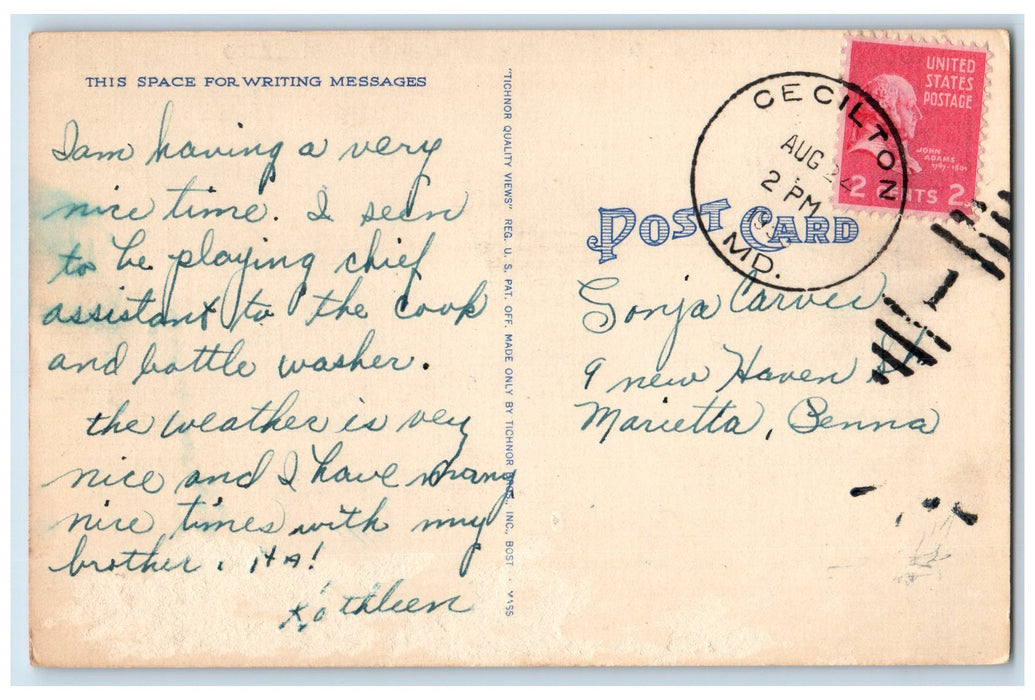 THIS SPACE FOR WRITING MESSAGES
I am having a very
nice time. I seem
to be playing chief
assistant to the cook
and bottle washer.
the weather is very
nice and I have many
nice times with my
brother. HA!
Kathleen
"TICHNOR QUALITY VIEWS" REG. U. S. PAT. OFF. MADE ONLY BY TICHNOR BROS., INC., BOST MASS
UNITED
STATES
POSTAGE
JOHN
ADAMS
1797-1801
2 CENTS 2
CECILTON
AUG 22
2 PM
MD.
POST CARD
Sonja Carver
9 new Haven St
Marietta, Penna